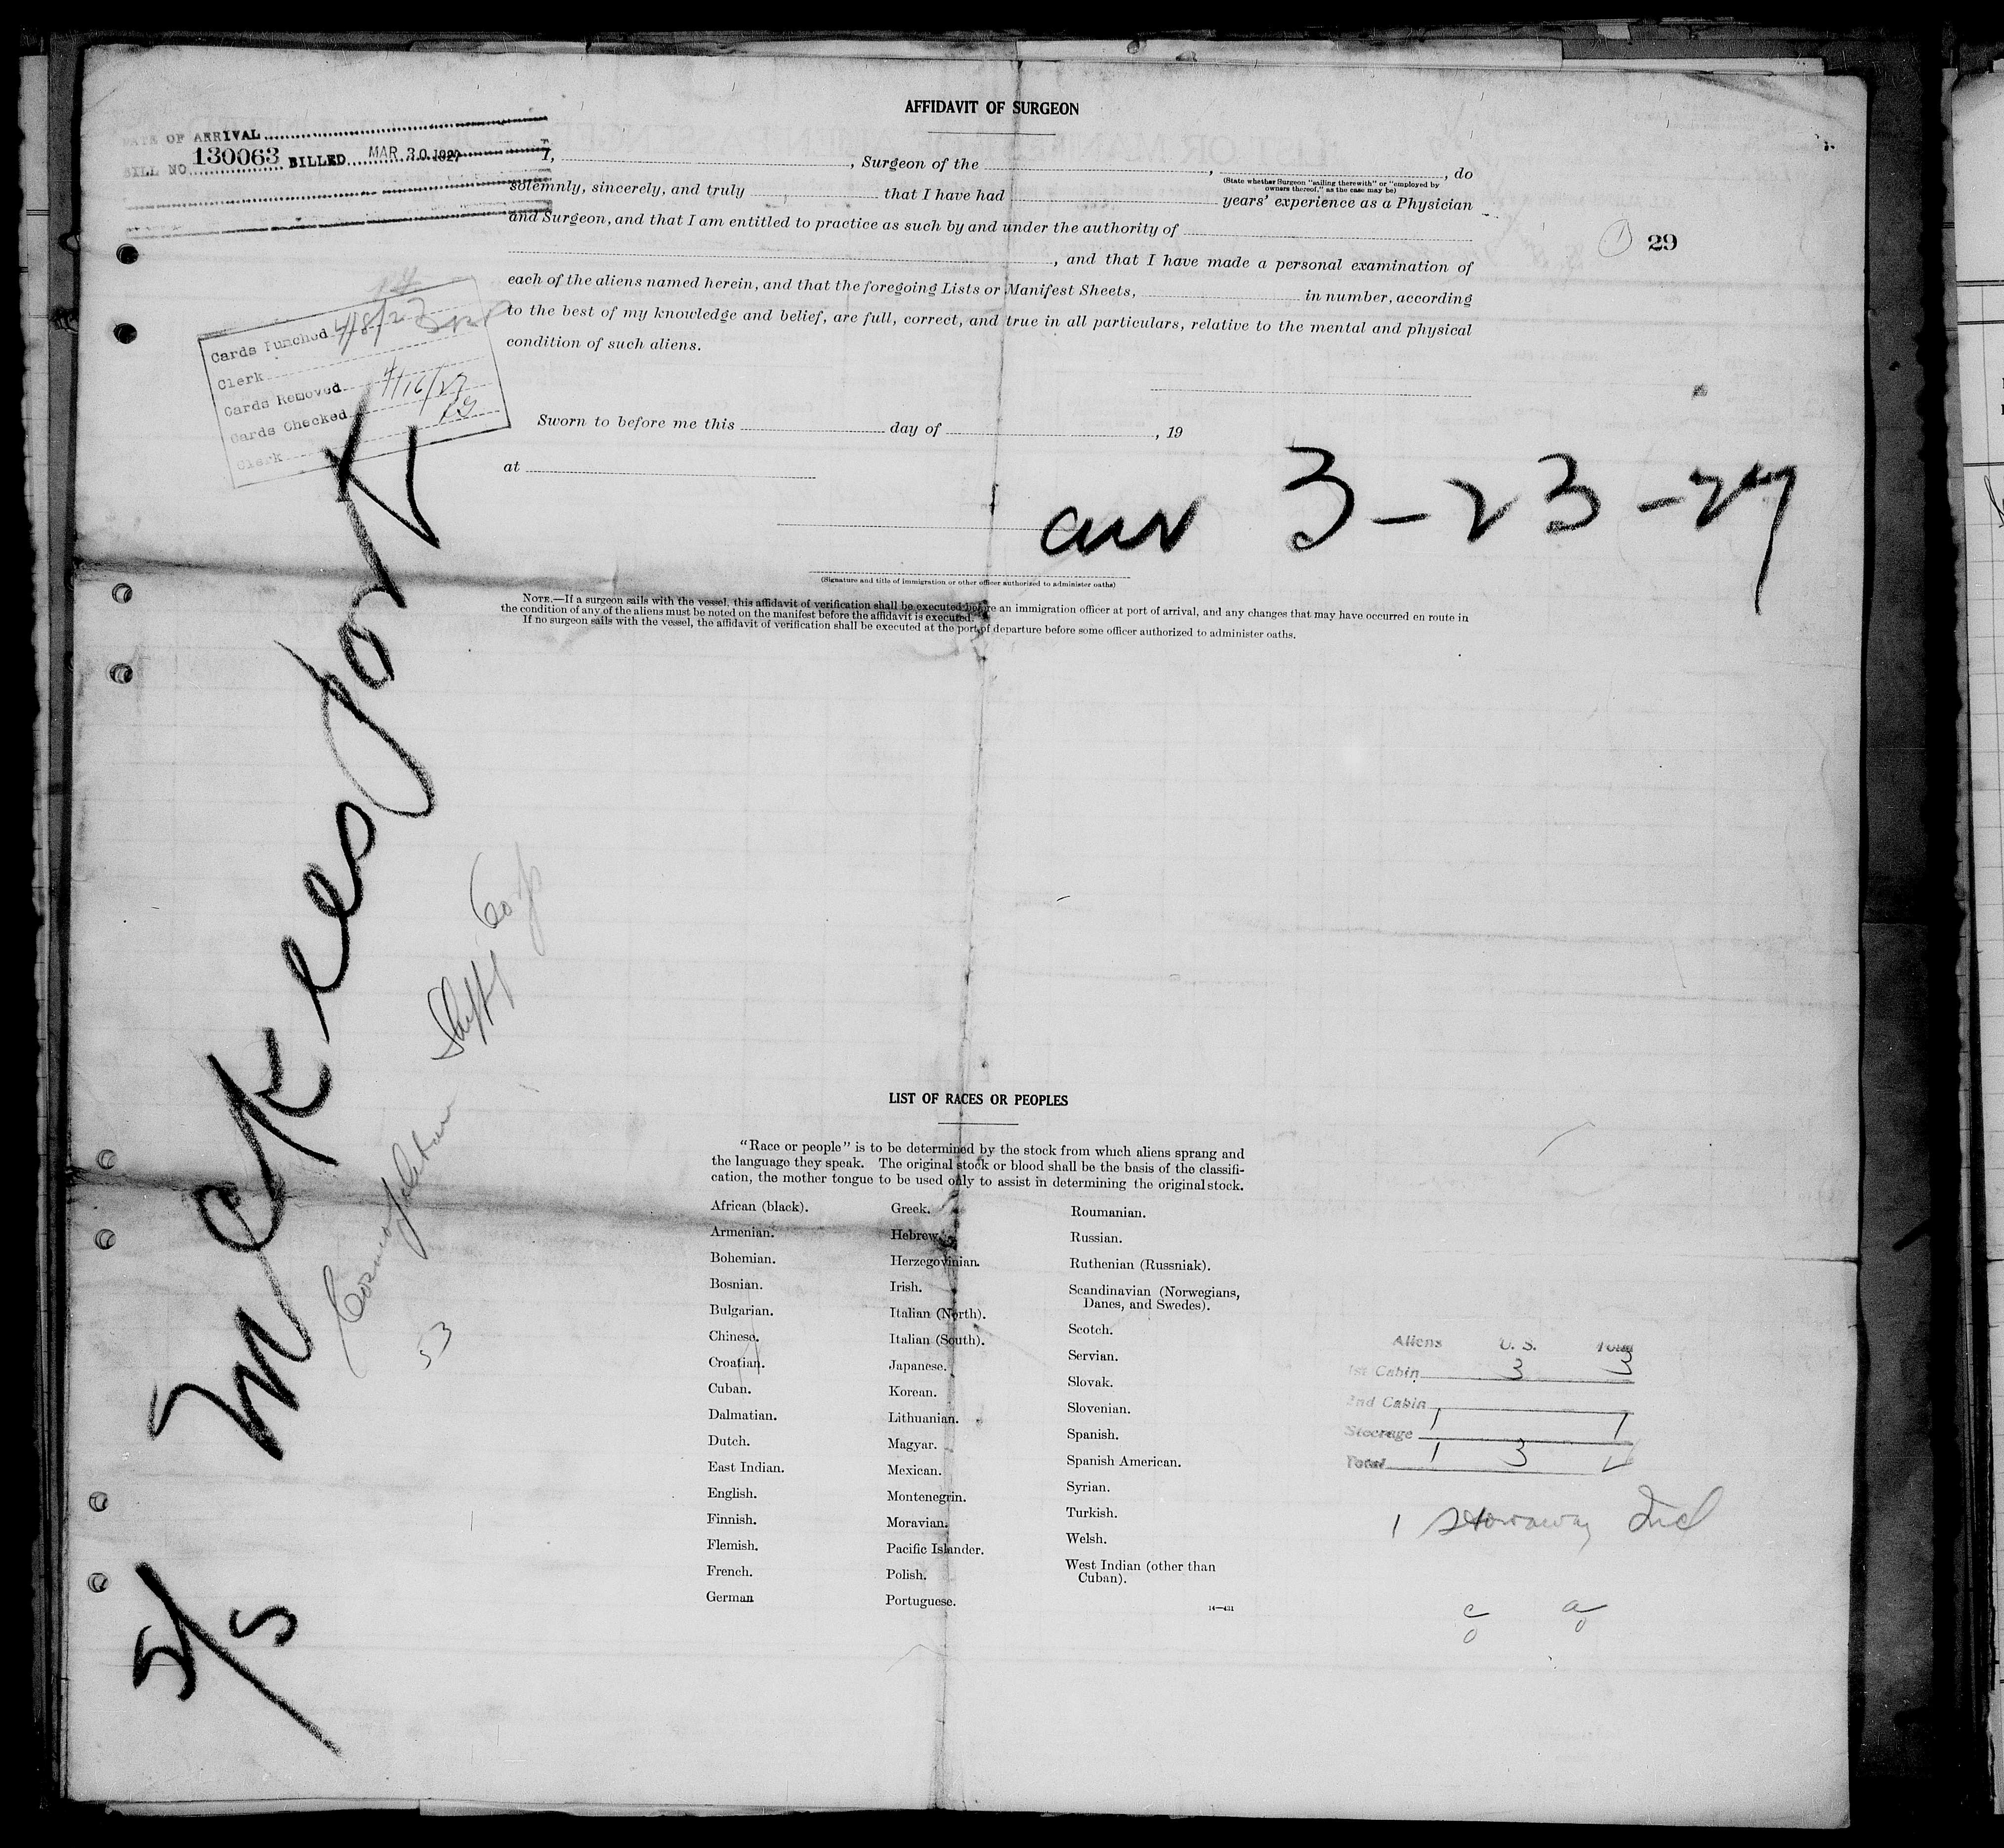 AFFIDAVIT OF SURGEON
DATE OF ARRIVAL
BILL NO. 130063 BILLED MAR 30 1927
I, , Surgeon of the , , do
(State whether Surgeon "sailing therewith" or "employed by
owners thereof," as the case may be)
solemnly, sincerely, and truly that I have had years' experience as a Physician
and Surgeon, and that I am entitled to practice as such by and under the authority of
, and that I have made a personal examination of
each of the aliens named herein, and that the foregoing Lists or Manifest Sheets, in number, according
to the best of my knowledge and belief, are full, correct, and true in all particulars, relative to the mental and physical
condition of such aliens.
1 29
Cards Punched 4/8/27
Clerk
Cards Removed 4/16/27
Cards Checked
Clerk
Sworn to before me this day of , 19
at
arr 3-23-27
(Signature and title of immigration or other officer authorized to administer oaths)
NOTE.—If a surgeon sails with the vessel, this affidavit of verification shall be executed before an immigration officer at port of arrival, and any changes that may have occurred en route in
the condition of any of the aliens must be noted on the manifest before the affidavit is executed.
If no surgeon sails with the vessel, the affidavit of verification shall be executed at the port of departure before some officer authorized to administer oaths.
S/S McKeesport
Cosmopolitan Shipp Co
53
LIST OF RACES OR PEOPLES
"Race or people" is to be determined by the stock from which aliens sprang and
the language they speak. The original stock or blood shall be the basis of the classifi-
cation, the mother tongue to be used only to assist in determining the original stock.
African (black).
Armenian.
Bohemian.
Bosnian.
Bulgarian.
Chinese.
Croatian.
Cuban.
Dalmatian.
Dutch.
East Indian.
English.
Finnish.
Flemish.
French.
German
Greek.
Hebrew.
Herzegovinian.
Irish.
Italian (North).
Italian (South).
Japanese.
Korean.
Lithuanian.
Magyar.
Mexican.
Montenegrin.
Moravian.
Pacific Islander.
Polish.
Portuguese.
Roumanian.
Russian.
Ruthenian (Russniak).
Scandinavian (Norwegians,
Danes, and Swedes).
Scotch.
Servian.
Slovak.
Slovenian.
Spanish.
Spanish American.
Syrian.
Turkish.
Welsh.
West Indian (other than
Cuban).
14—431
Aliens U. S. Total
1st Cabin 3 3
2nd Cabin
Steerage 1 1
Total 1 3
1 stowaway Incl
c a
0 0